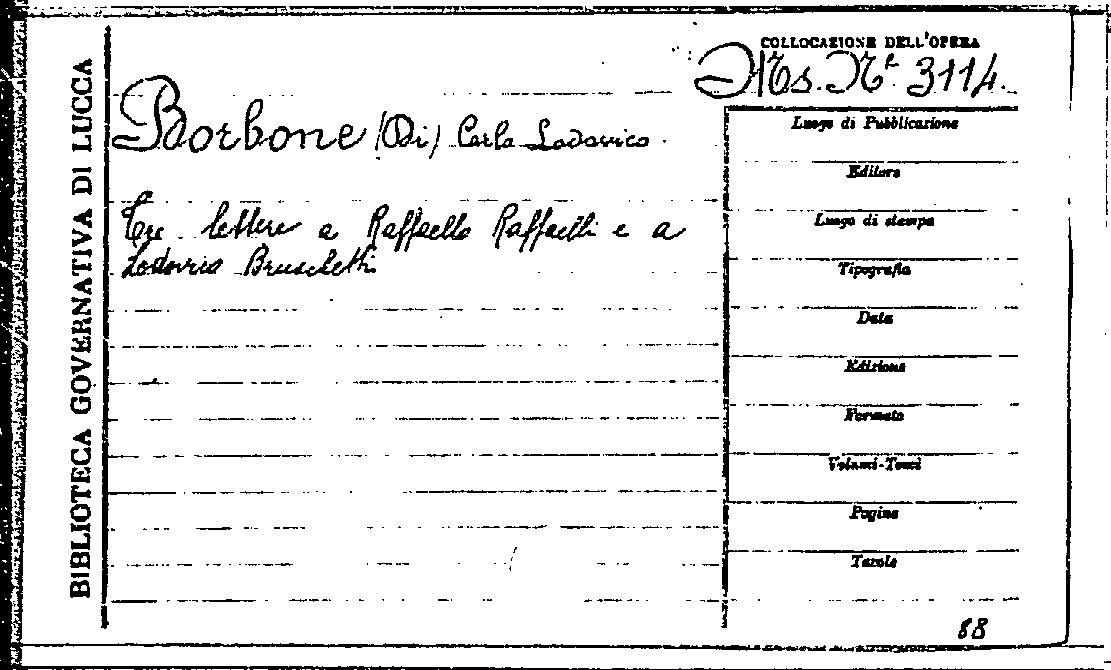 BIBLIOTECA GOVERNATIVA DI LUCCA
COLLOCAZIONE DELL'OPERA
Ms. N.º 3114.
Borbone (Di) Carlo Lodovico.
Tre lettere a Raffaello Raffaelli e a
Lodovico Bruschetti
Luogo di Pubblicazione
Editore
Luogo di stampa
Tipografia
Data
Edizione
Formato
Volumi-Tomi
Pagine
Tavole
88